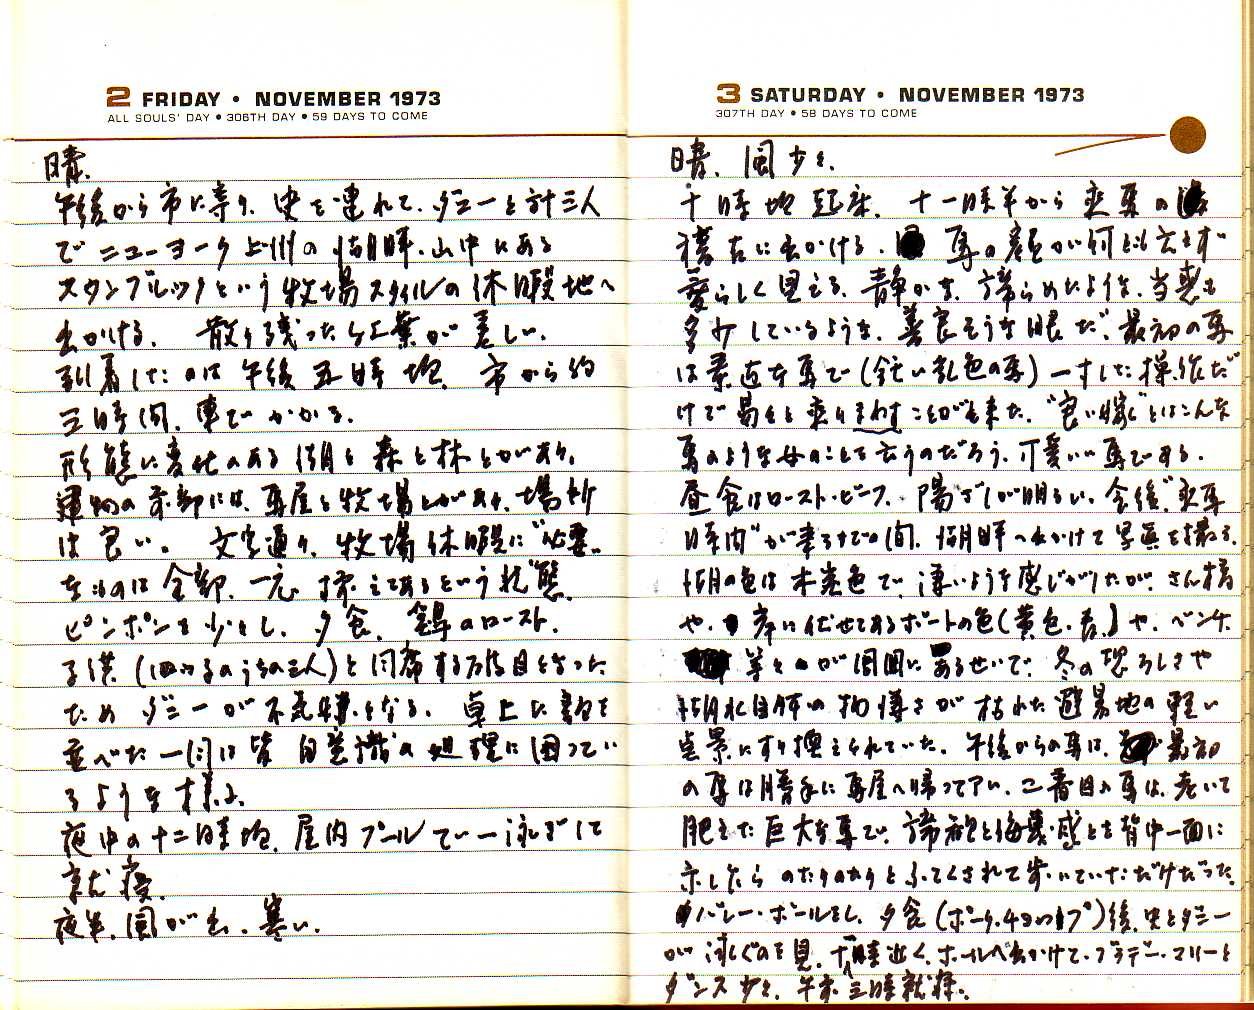 2 FRIDAY • NOVEMBER 1973
ALL SOULS' DAY • 306TH DAY • 59 DAYS TO COME
晴、
午後から市に寄り、史を連れて、ダニーと計三人
でニューヨーク上州の湖畔、山中にある
という牧場スタイルの休暇地へ
出かける。散り残った紅葉が美しい。
到着したのは午後五時頃、市から約
三時間、車でかかる。
形態に変化のある湖と森と林とがあり、
建物の東部には、馬屋と牧場とがあり、場所
は良い。文字通り、牧場休暇に"必要"
なものは全部、一応揃えてあるという状態。
ピンポンを少々し、夕食、鴨のロースト。
子供（四つ子のうちの三人）と同席する
ため ダニーが不気嫌となる。卓上に
並べた一同は皆 自意識の処理に困ってい
るような様子。
夜中の十二時頃、屋内プールで一泳ぎして
就寝。
夜半、風が出、寒い。
3 SATURDAY • NOVEMBER 1973
307TH DAY • 58 DAYS TO COME
晴、風少々。
十時頃起床、十一時半から乗馬の
稽古に出かける。馬の顔が何とも云えず
愛らしく見える。静かな、諦らめたような、当惑も
多少しているような、善良そうな眼だ。最初の馬
は素直な馬で一寸した操作だ
けで易々と乗りまわすことが出来た。"良い嫁"とはこんな
馬のような女のことを云うのだろう、可愛いい馬である。
昼食はロースト・ビーフ。陽ざしが明るい。食後"乗馬
時間"が来るまでの間、湖畔へ出かけて写真を撮る。
湖の色は木炭色で、凄いような感じがりたが、さん橋
や、岸に伏せてあるボートの色（黄色・青）や、ベンチ
等々が周囲にあるせいで、冬の恐ろしさや
湖水自体の物凄さが枯れた避暑地の軽い
点景にすり換えられていた。午後からの馬は、最初
の馬は勝手に馬屋へ帰って了い、二番目の馬は、老いて
肥えた巨大な馬で、諦観と侮蔑感とを背中一面に
示しながら のたりのたりとふてくされて歩いていただけだった。
バレー・ボールをし、夕食（ポーク・チョップ）後、史とダニー
が泳ぐのを見、十時近く、ホールへ出かけて、ブラデー・マリーと
ダンス少々、午前三時就寝。